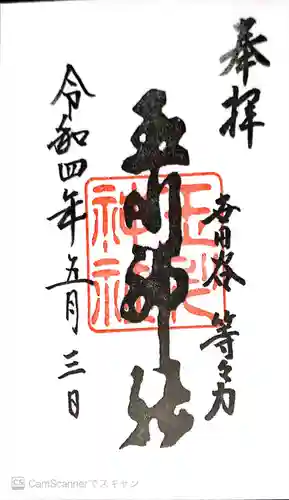 奉拝
世田谷 等々力
玉川神社
玉川神社
令和四年五月三日
CS CamScannerでスキャン